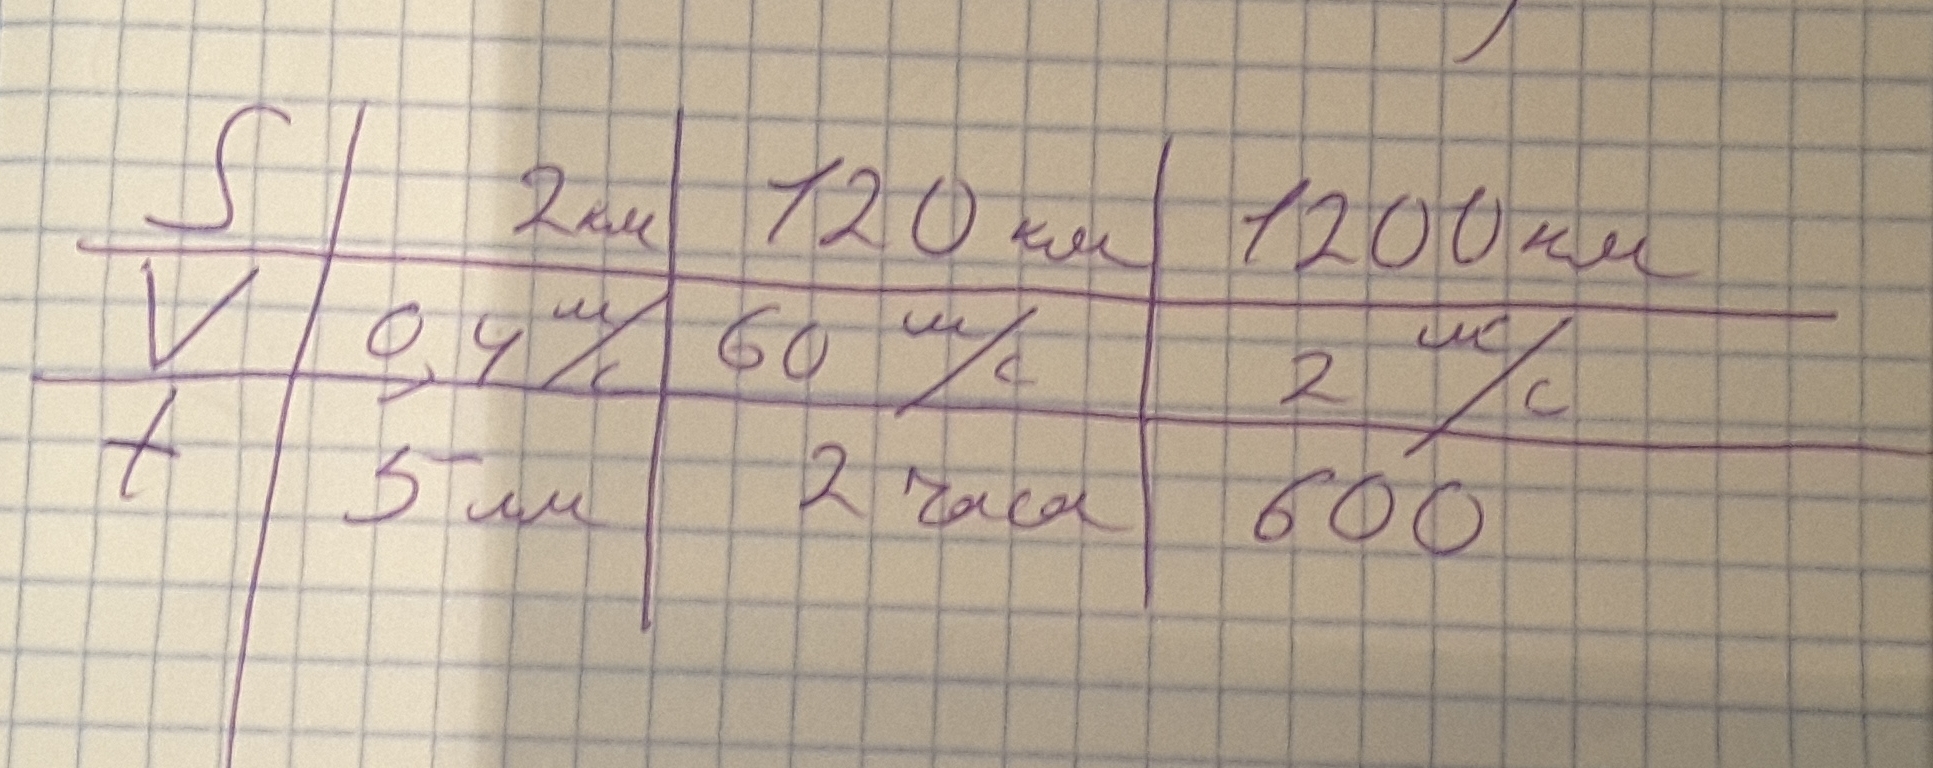 S 2км 120 км 1200 км
V 0,4 м/с 60 м/с 2 м/с
t 5 мм 2 часа 600